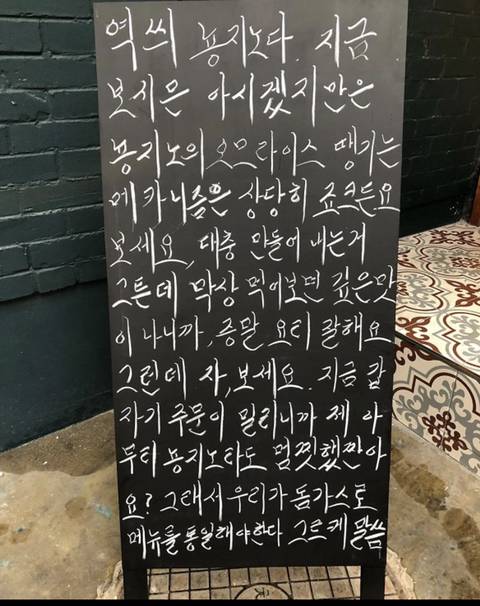 역씨 뇽지노다. 지금
보시은 아시겠지만은
뇽지노의 오므라이스 땡기는
메카니즘은 상당히 죠크든요
보세요, 대충 만들어 내는거
그튼데 막상 먹어보면 깊은맛
이 나니까. 증말 요티 잘해요
그런데 자, 보세요. 지금 갑
자기 주문이 밀리니까 제 아
무티 뇽지노타도 멈찟했짠아
요? 그태서 우리가 돔가스로
메뉴를 통일해야한다 그르케 말씀